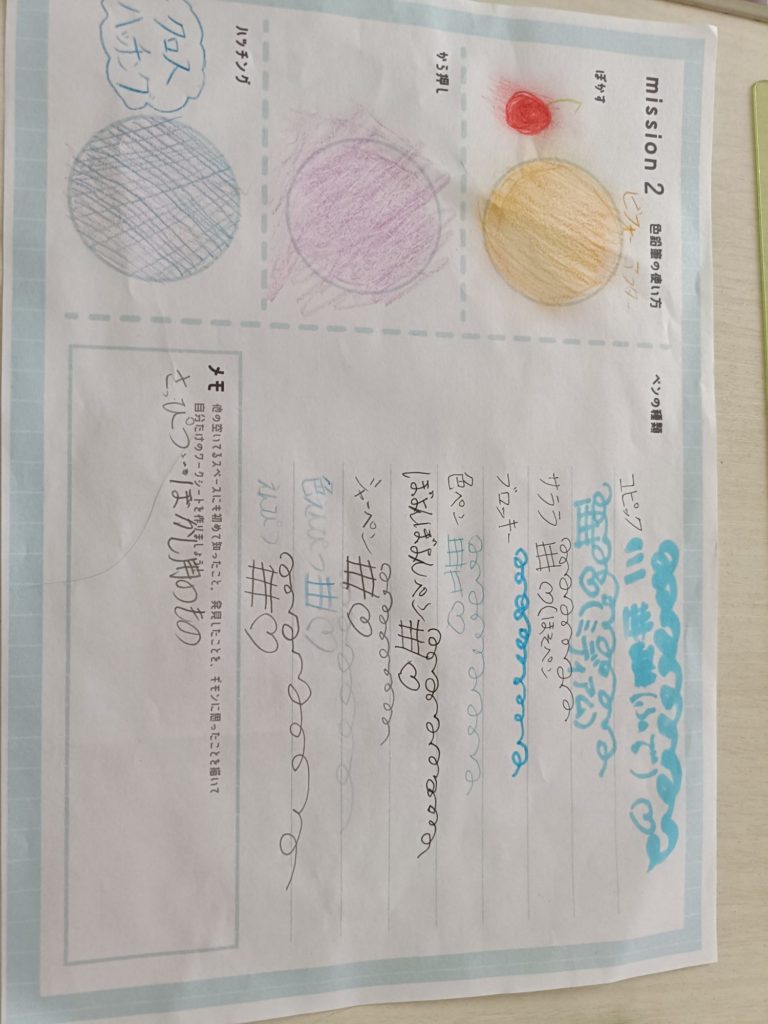 mission 2 色鉛筆の使い方
ビフォー アフター
ぼかす
から押し
ハッチング
クロス
ハッチング
ペンの種類
コピック
(ふで)
(ミディアム)
サララ
(ほそペン)
ブロッキー
色ペン
ぼんぼんペン
シャーペン
色えんぴつ
えんぴつ
メモ 他の空いてるスペースにも初めて知ったこと、発見したことを、ギモンに思ったことを描いて
自分だけのワークシートを作りましょう
さっぴつ…ぼかし用のもの